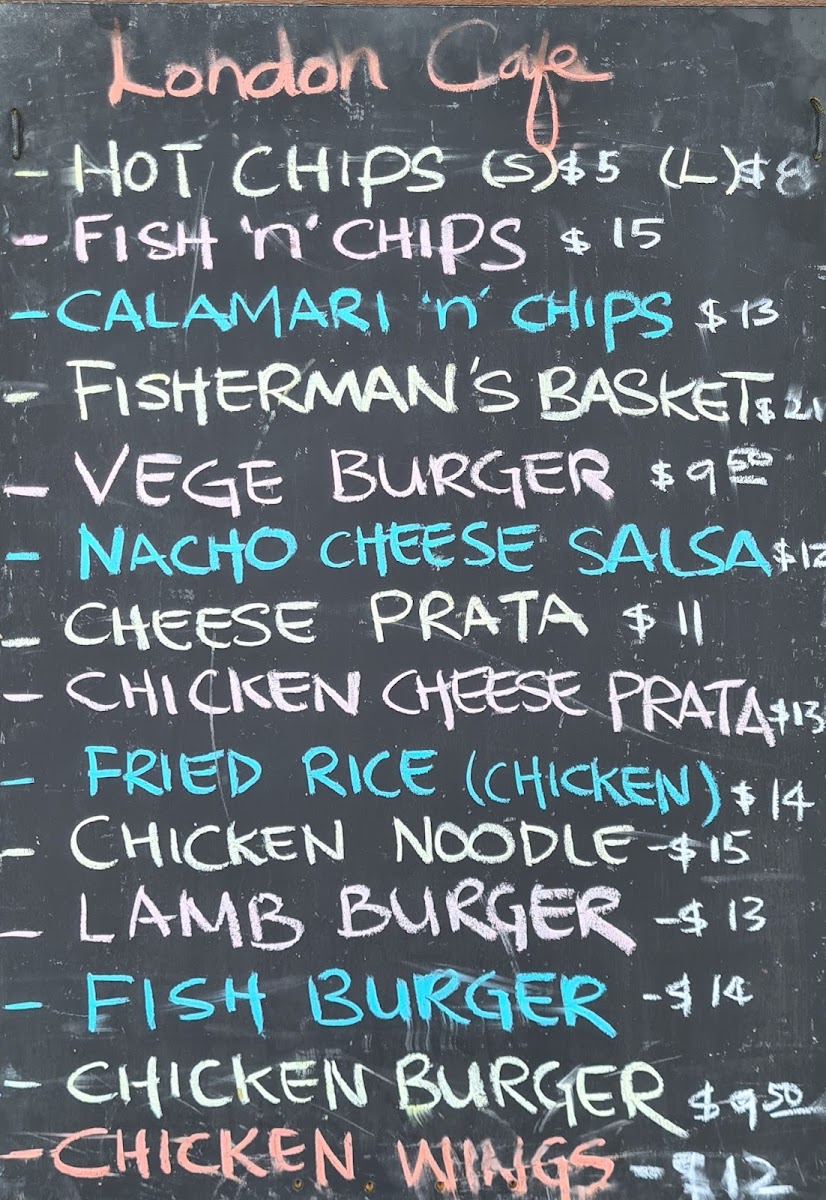 London Cafe
- HOT CHIPS (S)$5 (L)$8
- FISH 'n' CHIPS $15
- CALAMARI 'n' CHIPS $13
- FISHERMAN'S BASKET $21
- VEGE BURGER $9 50
- NACHO CHEESE SALSA $12
- CHEESE PRATA $11
- CHICKEN CHEESE PRATA $13
- FRIED RICE (CHICKEN) $14
- CHICKEN NOODLE -$15
- LAMB BURGER -$13
- FISH BURGER -$14
- CHICKEN BURGER $9 50
- CHICKEN WINGS - $12